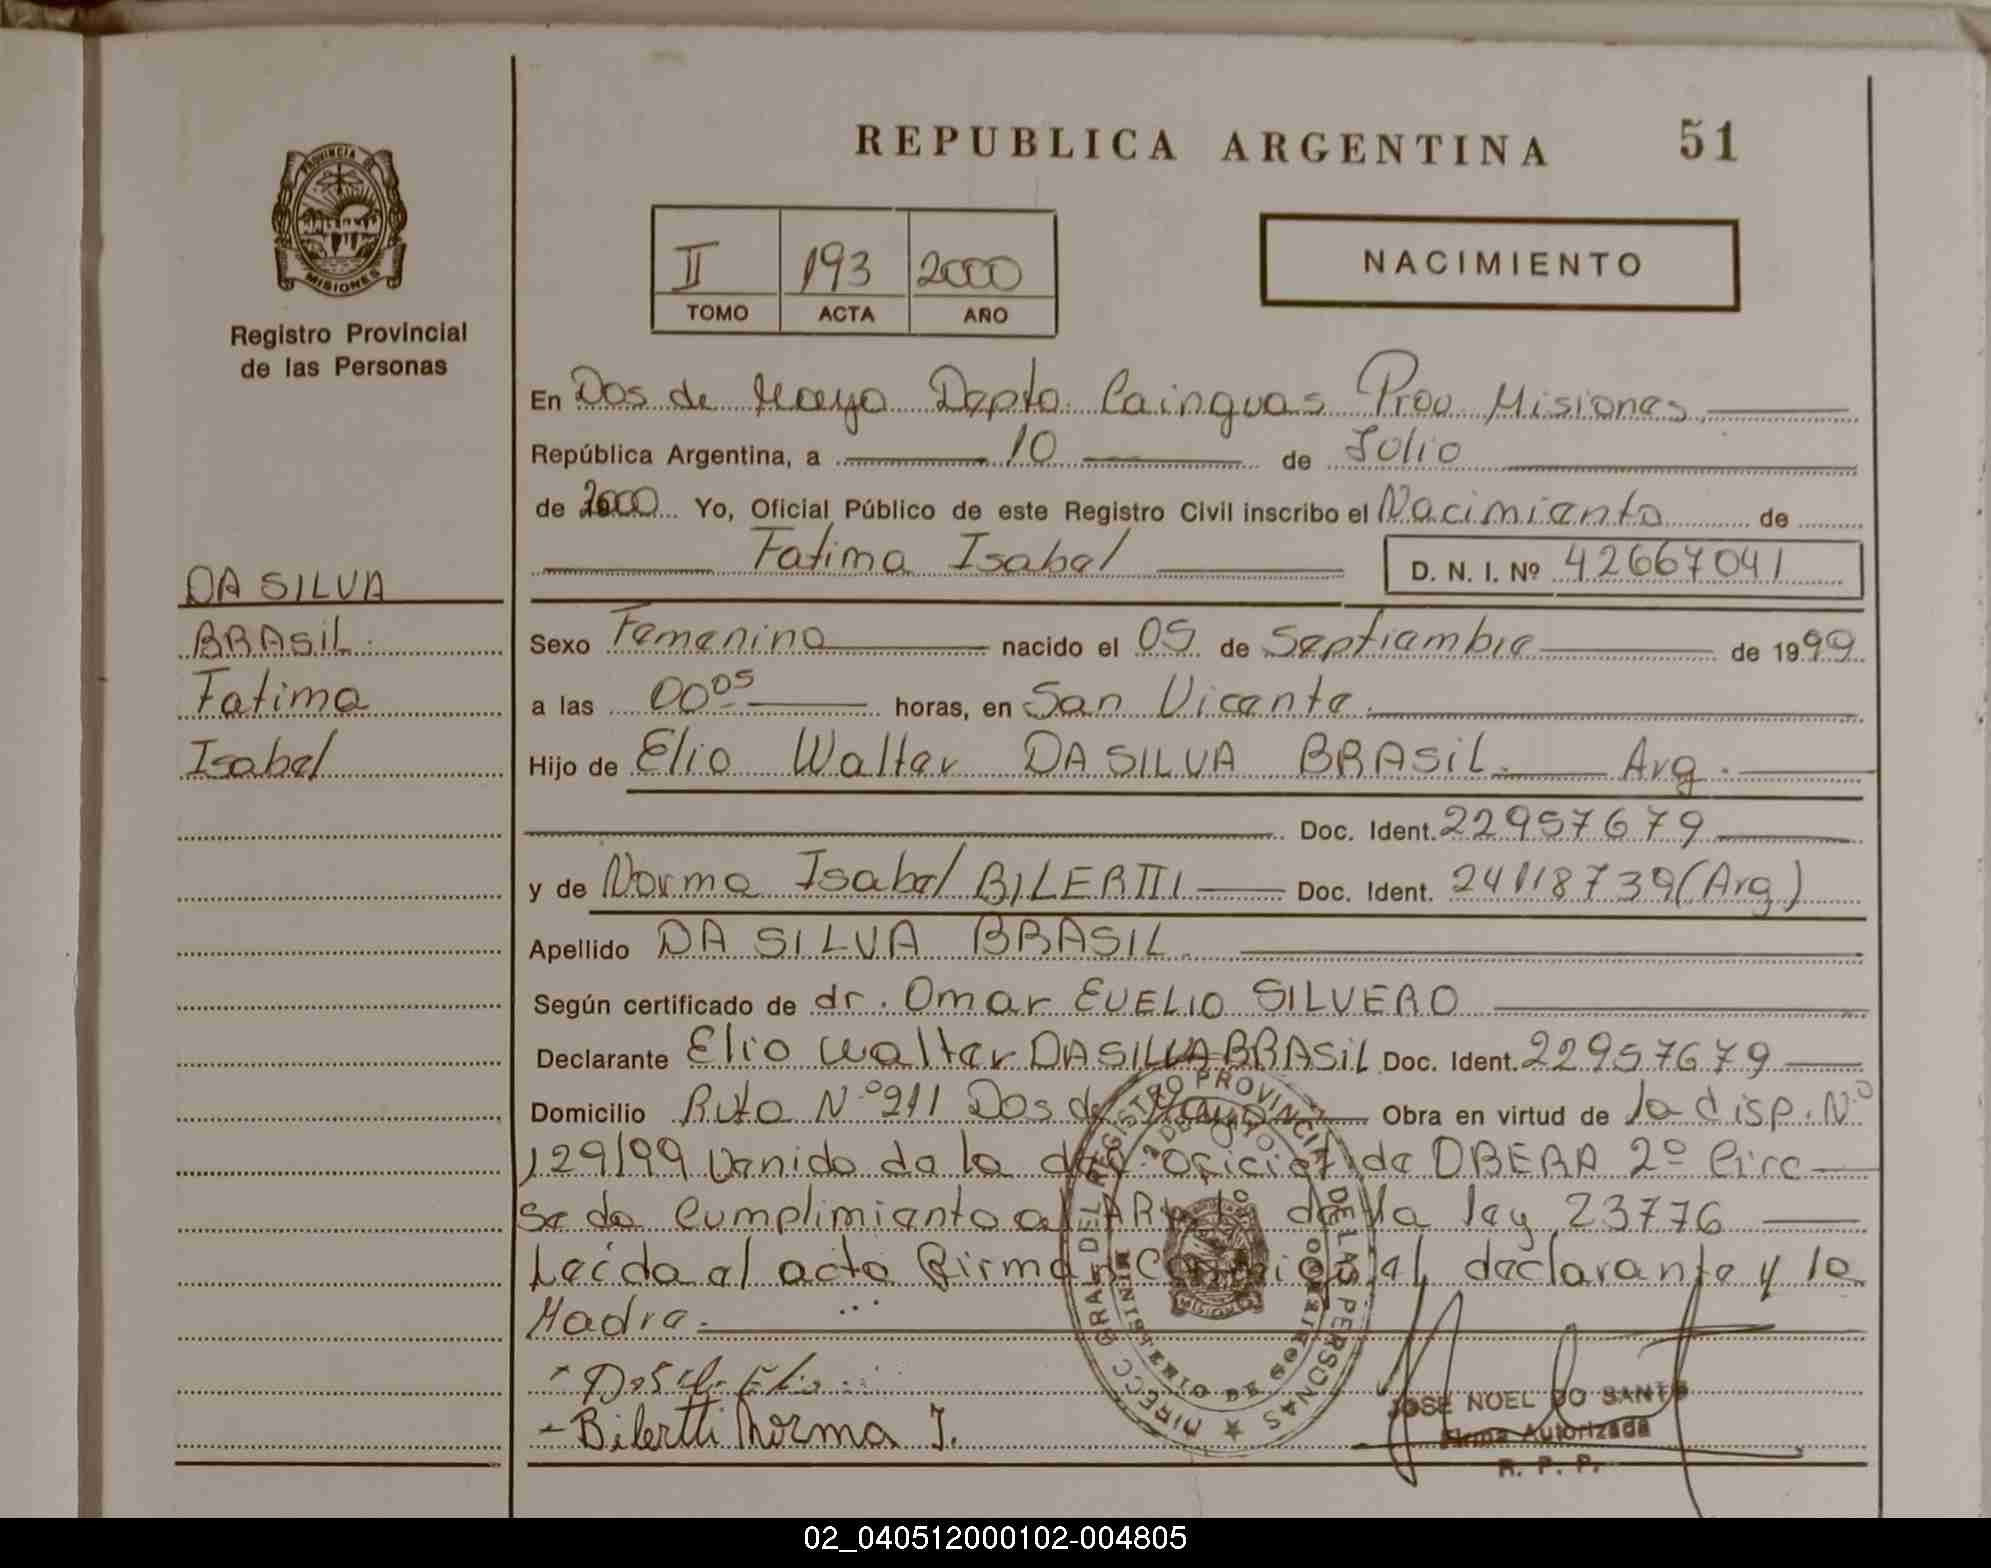 PROVINCIA DE
MISIONES
Registro Provincial
de las Personas
DA SILVA
BRASIL.
Fatima
Isabel
REPUBLICA ARGENTINA 51
II 193 2000
TOMO ACTA AÑO
NACIMIENTO
En Dos de Mayo Depto. Cainguas Prov. Misiones
República Argentina, a 10 de Julio
de 2000 Yo, Oficial Público de este Registro Civil inscribo el Nacimiento de
Fatima Isabel D. N. I. Nº 42667041
Sexo Femenino nacido el 05 de Septiembre de 1999
a las 00 05 horas, en San Vicente.
Hijo de Elio Walter DA SILVA BRASIL. Arg.
Doc. Ident. 22957679
y de Norma Isabel BILERTTI Doc. Ident. 24118739 (Arg)
Apellido DA SILVA BRASIL.
Según certificado de dr. Omar EVELIO SILVERO
Declarante Elio Walter DA SILVA BRASIL Doc. Ident. 22957679
Domicilio Ruta Nº 211 Dos de Mayo Obra en virtud de la disp. Nº
129/99 venido de la oficial de OBERA 2º Circ
Se da Cumplimiento al Art. de la ley 23776
Leida el acta firma el declarante y la
Madre.
Da Silva Elio
- Bilertti Norma I.
DIRECC GRAL DEL REGISTRO PROVINCIAL DE LAS PERSONAS
MINISTERIO DE GOBIERNO
2 DE MAYO
MISIONES
JOSE NOEL DO SANTOS
Firma Autorizada
R. P. P.
02_040512000102-004805